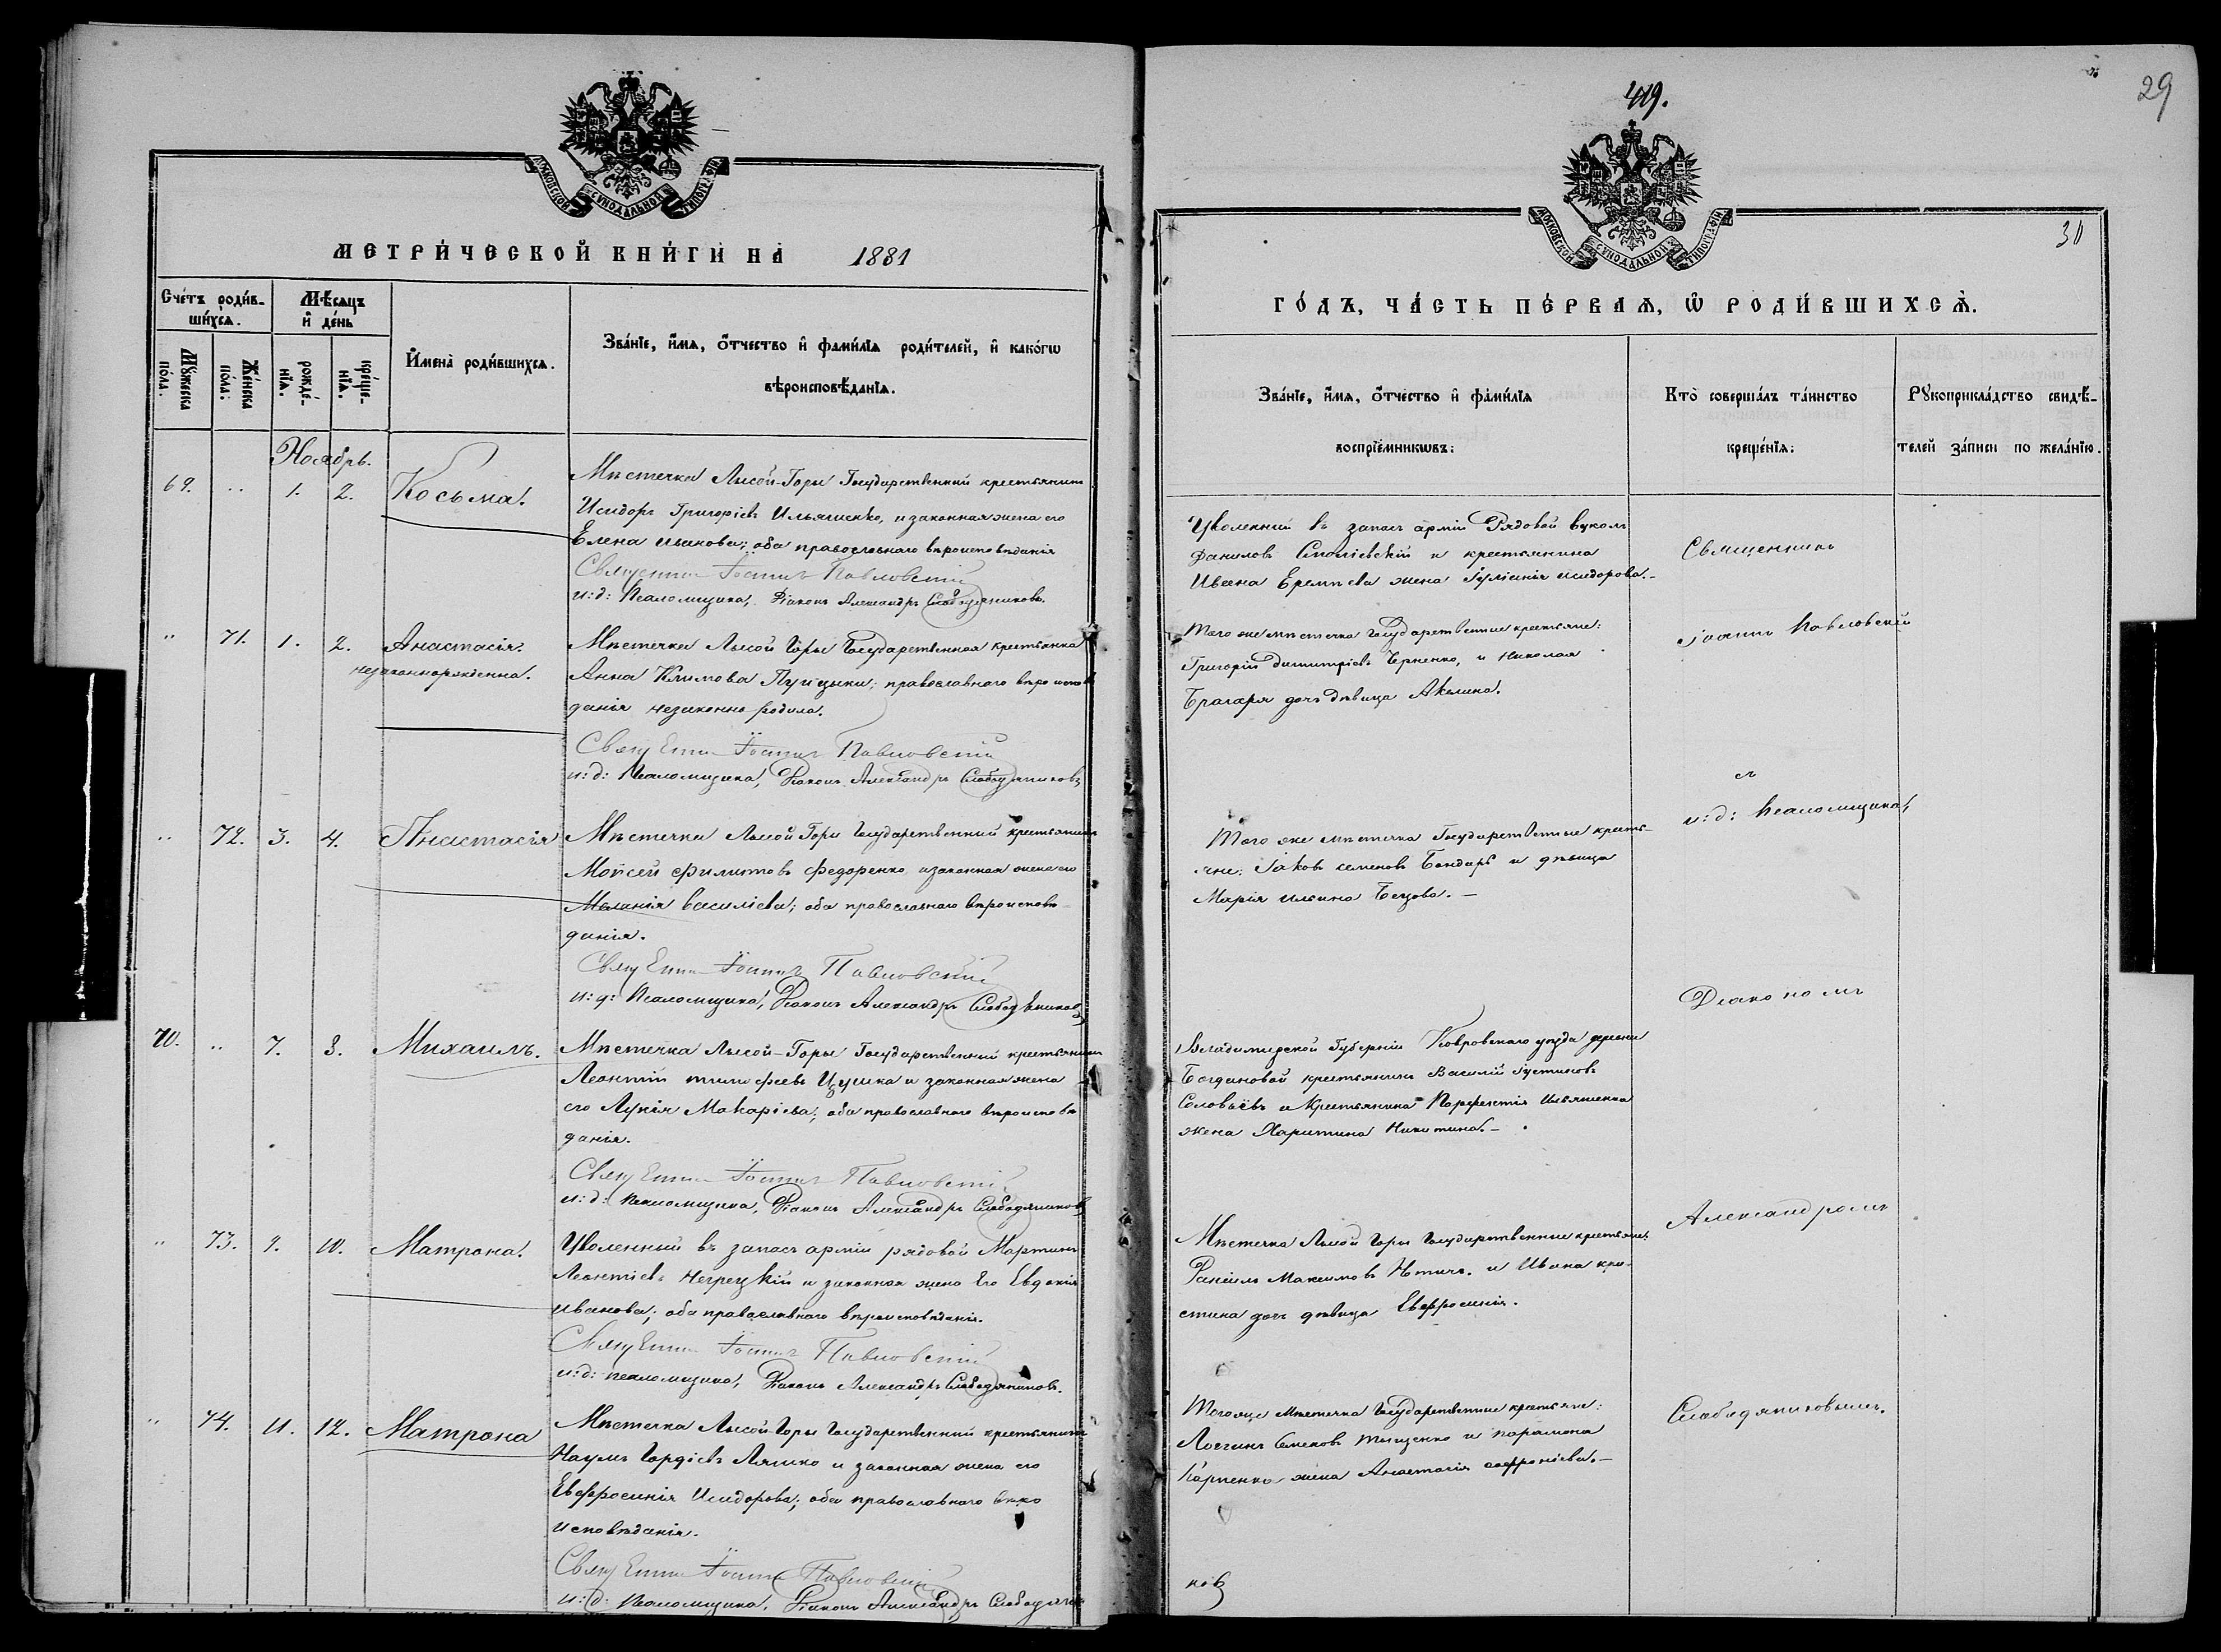 МОСКОВСКОЙ СУНОДАЛЬНОЙ ТИПОГРАФІИ
МЕТРИЧЕСКОЙ КНИГИ НА 1881
Счетъ родив-
шихся.
Мѣсяцъ
и день
Имена родившихся.
Званіе, имя, отчество и фамилія родителей, и какогѡ
вѣроисповѣданія.
Мужеска
пола.
Женска
пола.
рожде-
нія.
креще-
нія.
Ноябрь.
69. .. 1. 2. Косьма.
Мѣстечка Лысой-Горы Государственный крестьянинъ
Исидоръ Григоріевъ Ильяшенко, и законная жена его
Елена Иванова; оба православнаго вѣроисповѣданія
Священникъ Іоаннъ Павловскій
и: д: Псаломщика, Діаконъ Александръ Слободяниковъ.
" 71. 1. 2. Анастасія.
незаконнорожденна.
Мѣстечка Лысой Горы Государственная крестьянка
Анна Климова православнаго вѣроисповѣ
данія незаконно родила.
Священникъ Іоаннъ Павловскій
и: д: Псаломщика, Діаконъ Александръ Слободяниковъ
.. 72. 3. 4. Анастасія
Мѣстечка Лысой Горы Государственный крестьянинъ
Мойсей Филиповъ Федоренко и законная жена его
Меланія Василіева; оба православнаго вѣроисповѣ-
данія.
Священникъ Іоаннъ Павловскій
и: д: Псаломщика, Діаконъ Александръ Слободяниковъ
70. .. 7. 8. Михаилъ.
Мѣстечка Лысой-Горы Государственный крестьянинъ
Леонтій Тимофеевъ и законная жена
его Лукія Макаріева; оба православнаго вѣроисповѣ
данія.
Священникъ Іоаннъ Павловскій
и: д: Псаломщика, Діаконъ Александръ Слободяниковъ
" 73. 9. 10. Матрона.
Уволенный въ запасъ арміи рядовой Мартинъ
Леонтіевъ Негрецкій и законная жена Его Евдокія
Иванова; оба православнаго вѣроисповѣданія.
Священникъ Іоаннъ Павловскій
и: д: псаломщика, Діаконъ Александръ Слободяниковъ.
.. 74. 11. 12. Матрона
Мѣстечка Лысой-Горы Государственный крестьянинъ
Наумъ Гордіевъ Ляшко и законная жена его
Евфросинія Исидорова; оба православнаго вѣро
исповѣданія.
Священникъ Іоаннъ Павловскій
и: д: Псаломщика, Діаконъ Александръ Слободяни
419.
29
30
МОСКОВСКОЙ СУНОДАЛЬНОЙ ТИПОГРАФІИ
ГОДЪ, ЧАСТЬ ПЕРВАЯ, Ѡ РОДИВШИХСЯ.
Званіе, имя, отчество и фамилія
воспріемникѡвъ:
Кто совершалъ таинство
крещенія:
Рукоприкладство свидѣ-
телей записи по желанію.
Уволенный въ запасъ арміи Рядовой Вуколъ
Даниловъ и крестьянина
Ивана Еремѣева жена Іуліанія Исидорова.-
Того же мѣстечка Государственные крестьяне:
Григорій Димитріевъ Черненко, и Николая
Брагаря дочь дѣвица Акилина.
Того же мѣстечка Государственные кресть-
яне: Іаковъ Семеновъ Бондарь и дѣвица
Марія Ильина -
Владимирской Губерніи Ковровскаго уѣзда деревни
Богдановой крестьянинъ Василій Іустиновъ
Соловьевъ и Крестьянина Парфентія Ильяшенка
жена Харитина Никитина.-
Мѣстечка Лысой Горы Государственные крестьяне:
Даніилъ Максимовъ и Ивана
дочь дѣвица Евфросинія.
Того же Мѣстечка Государственные крестьяне:
Логгинъ Семеновъ Тищенко и Парамона
Карпенка жена Анастасія Софроніева.-
ковъ
Священникъ
Іоаннъ Павловскій
съ
и: д: Псаломщика,
Діакономъ
Александромъ
Слободяниковымъ.